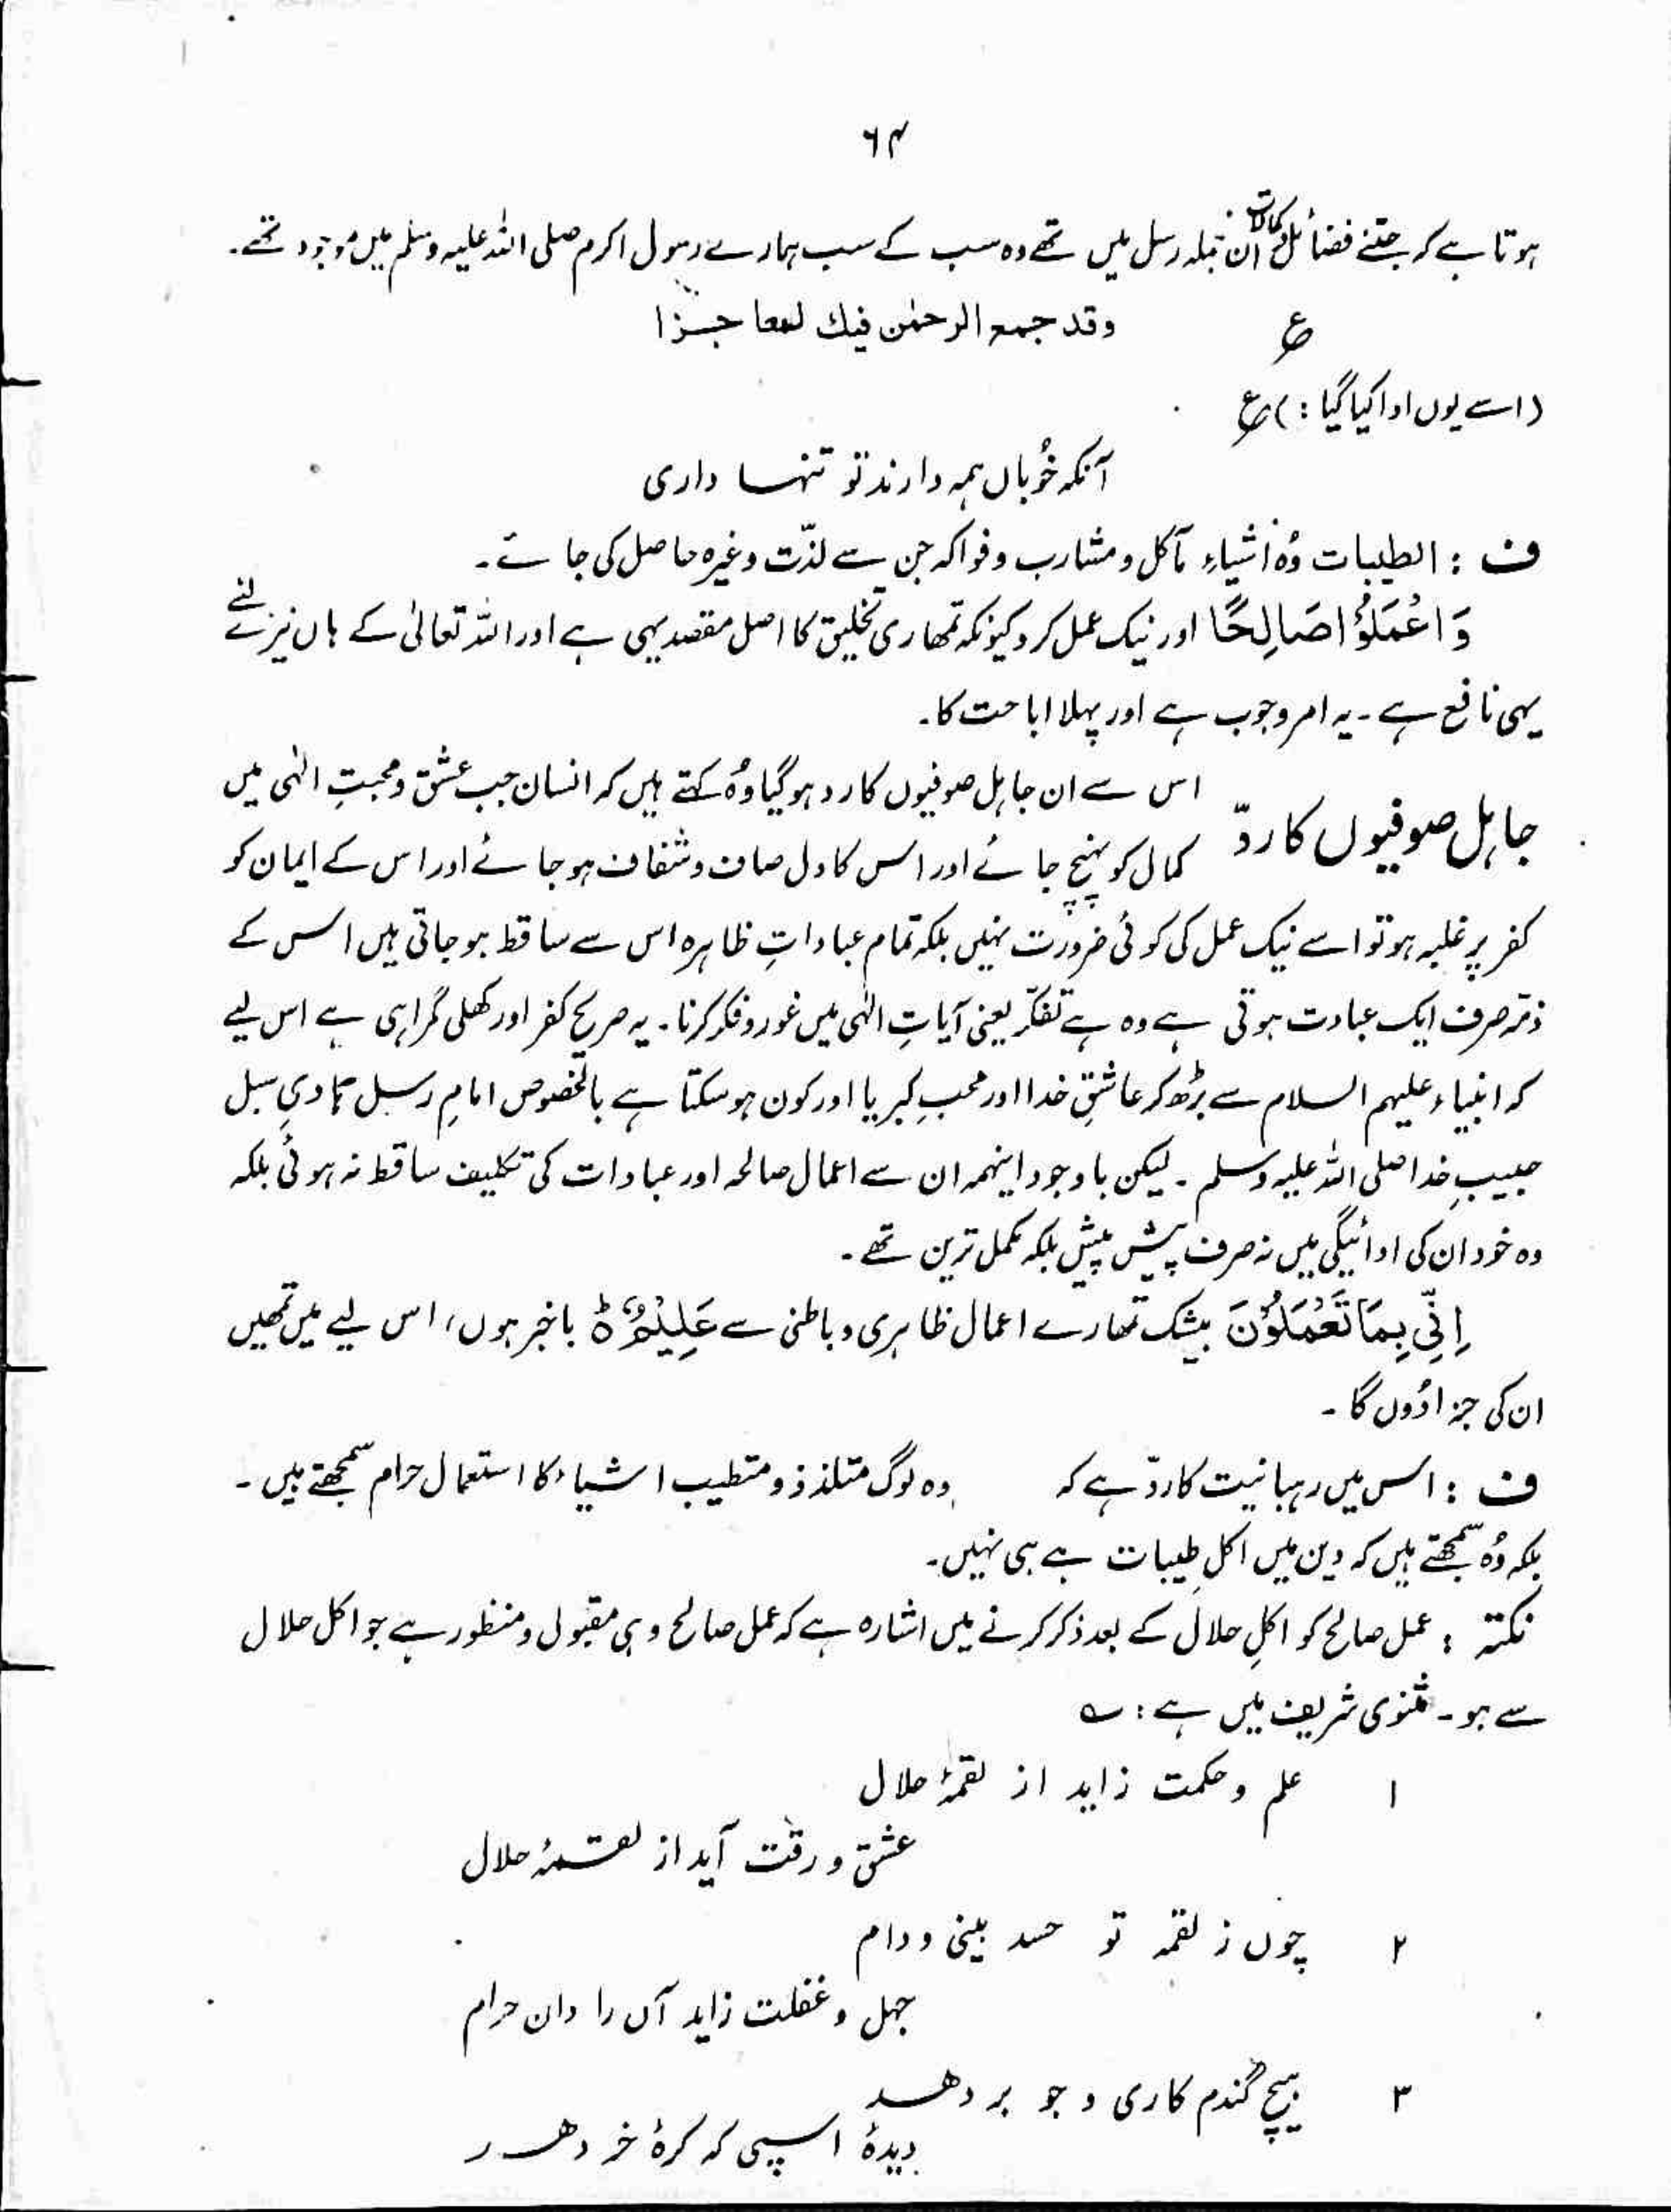 ۶۴
ہوتا ہے کہ جتنے فضائل و کمالات ان جملہ رسل میں تھے وہ سب کے سب ہمارے رسول اکرم صلی اللہ علیہ وسلم میں موجود تھے۔
ع وقد جمع الرحمٰن فيك المعاجزا
(اسے یوں ادا کیا گیا :) ع
آنکہ خُوباں ہمہ دارند تو تنہا داری
ف : الطیبات وُہ اشیاءِ مآکل و مشارب و فواکہ جن سے لذّت وغیرہ حاصل کی جائے۔
وَاعْمَلُوْا صَالِحًا اور نیک عمل کرو کیونکہ تمھاری تخلیق کا اصل مقصد یہی ہے اور اللہ تعالیٰ کے ہاں تیرے لئے
یہی نافع ہے۔ یہ امر وجوب ہے اور پہلا اباحت کا۔
جاہل صوفیوں کا ردّ
اس سے ان جاہل صوفیوں کا رد ہوگیا وُہ کہتے ہیں کہ انسان جب عشق و محبتِ الٰہی میں
کمال کو پہنچ جائے اور اس کا دل صاف و شفاف ہو جائے اور اس کے ایمان کو
کفر پر غلبہ ہو تو اسے نیک عمل کی کوئی ضرورت نہیں بلکہ تمام عباداتِ ظاہرہ اس سے ساقط ہو جاتی ہیں اس کے
ذمّہ صرف ایک عبادت ہوتی ہے وہ ہے تفکّر یعنی آیاتِ الٰہی میں غور و فکر کرنا۔ یہ صریح کفر اور کھلی گمراہی ہے اس لیے
کہ انبیاء علیہم السلام سے بڑھ کر عاشقِ خدا اور محبِ کبریا اور کون ہو سکتا ہے بالخصوص امامِ رسل ہادیِ سبل
حبیبِ خدا صلی اللہ علیہ وسلم ۔ لیکن باوجود اینہمہ ان سے اعمال صالحہ اور عبادات کی تکلیف ساقط نہ ہوئی بلکہ
وہ خود ان کی ادائیگی میں نہ صرف پیش پیش بلکہ مکمل ترین تھے۔
اِنِّیْ بِمَا تَعْمَلُوْنَ بیشک تمھارے اعمال ظاہری و باطنی سے عَلِیْمٌ ہ باخبر ہوں، اس لیے میں تمھیں
ان کی جزا دُوں گا ۔
ف : اس میں رہبانیت کا ردّ ہے کہ وہ لوگ متلذذ و متطیب اشیاء کا استعمال حرام سمجھتے ہیں ۔
بلکہ وُہ سمجھتے ہیں کہ دین میں اکلِ طیبات ہے ہی نہیں۔
نکتہ : عمل صالح کو اکلِ حلال کے بعد ذکر کرنے میں اشارہ ہے کہ عمل صالح وہی مقبول و منظور ہے جو اکل حلال
سے ہو۔ مثنوی شریف میں ہے : ؎
۱ علم و حکمت زاید از لقمۂ حلال
عشق و رقت آید از لقمۂ حلال
۲ چوں ز لقمہ تو حسد بینی و دام
جہل و غفلت زاید آں را دان حرام
۳ ہیچ گندم کاری و جو بر دھد
دیدۂ اسپی کہ کرۂ خر دھد